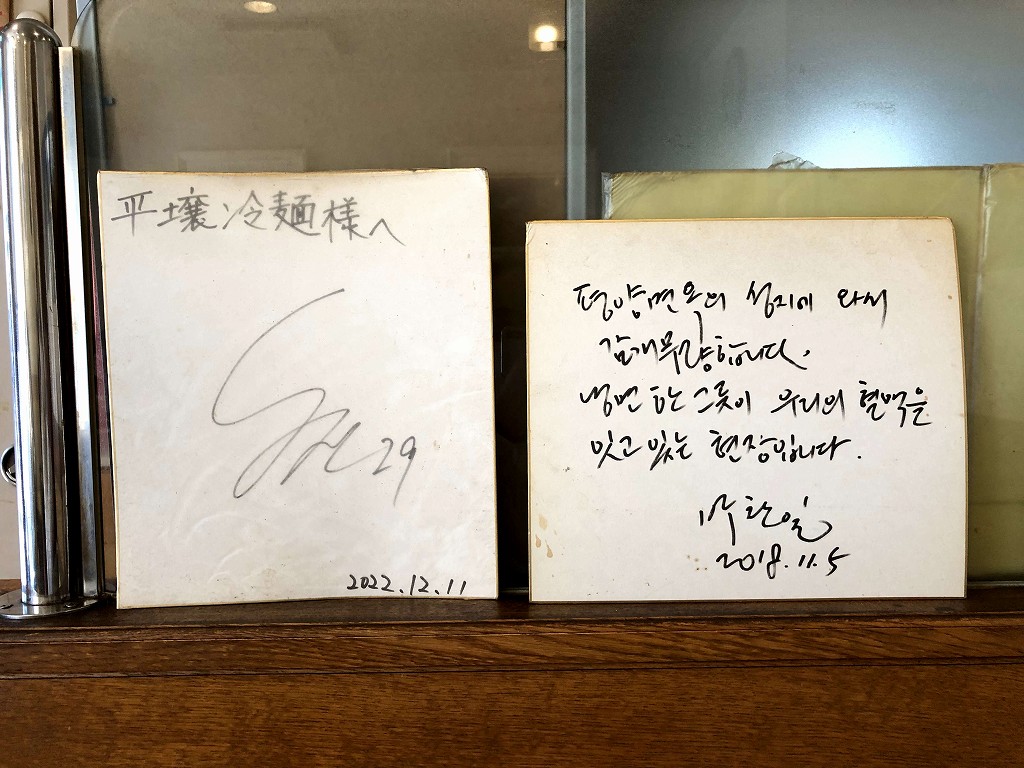 平壌冷麺様へ
29
2022.12.11
평양면옥의 성지에 와서
감개무량합니다.
냉면 한 그릇이 우리의 혈맥을
잇고 있는 현장입니다.
2018.11.5